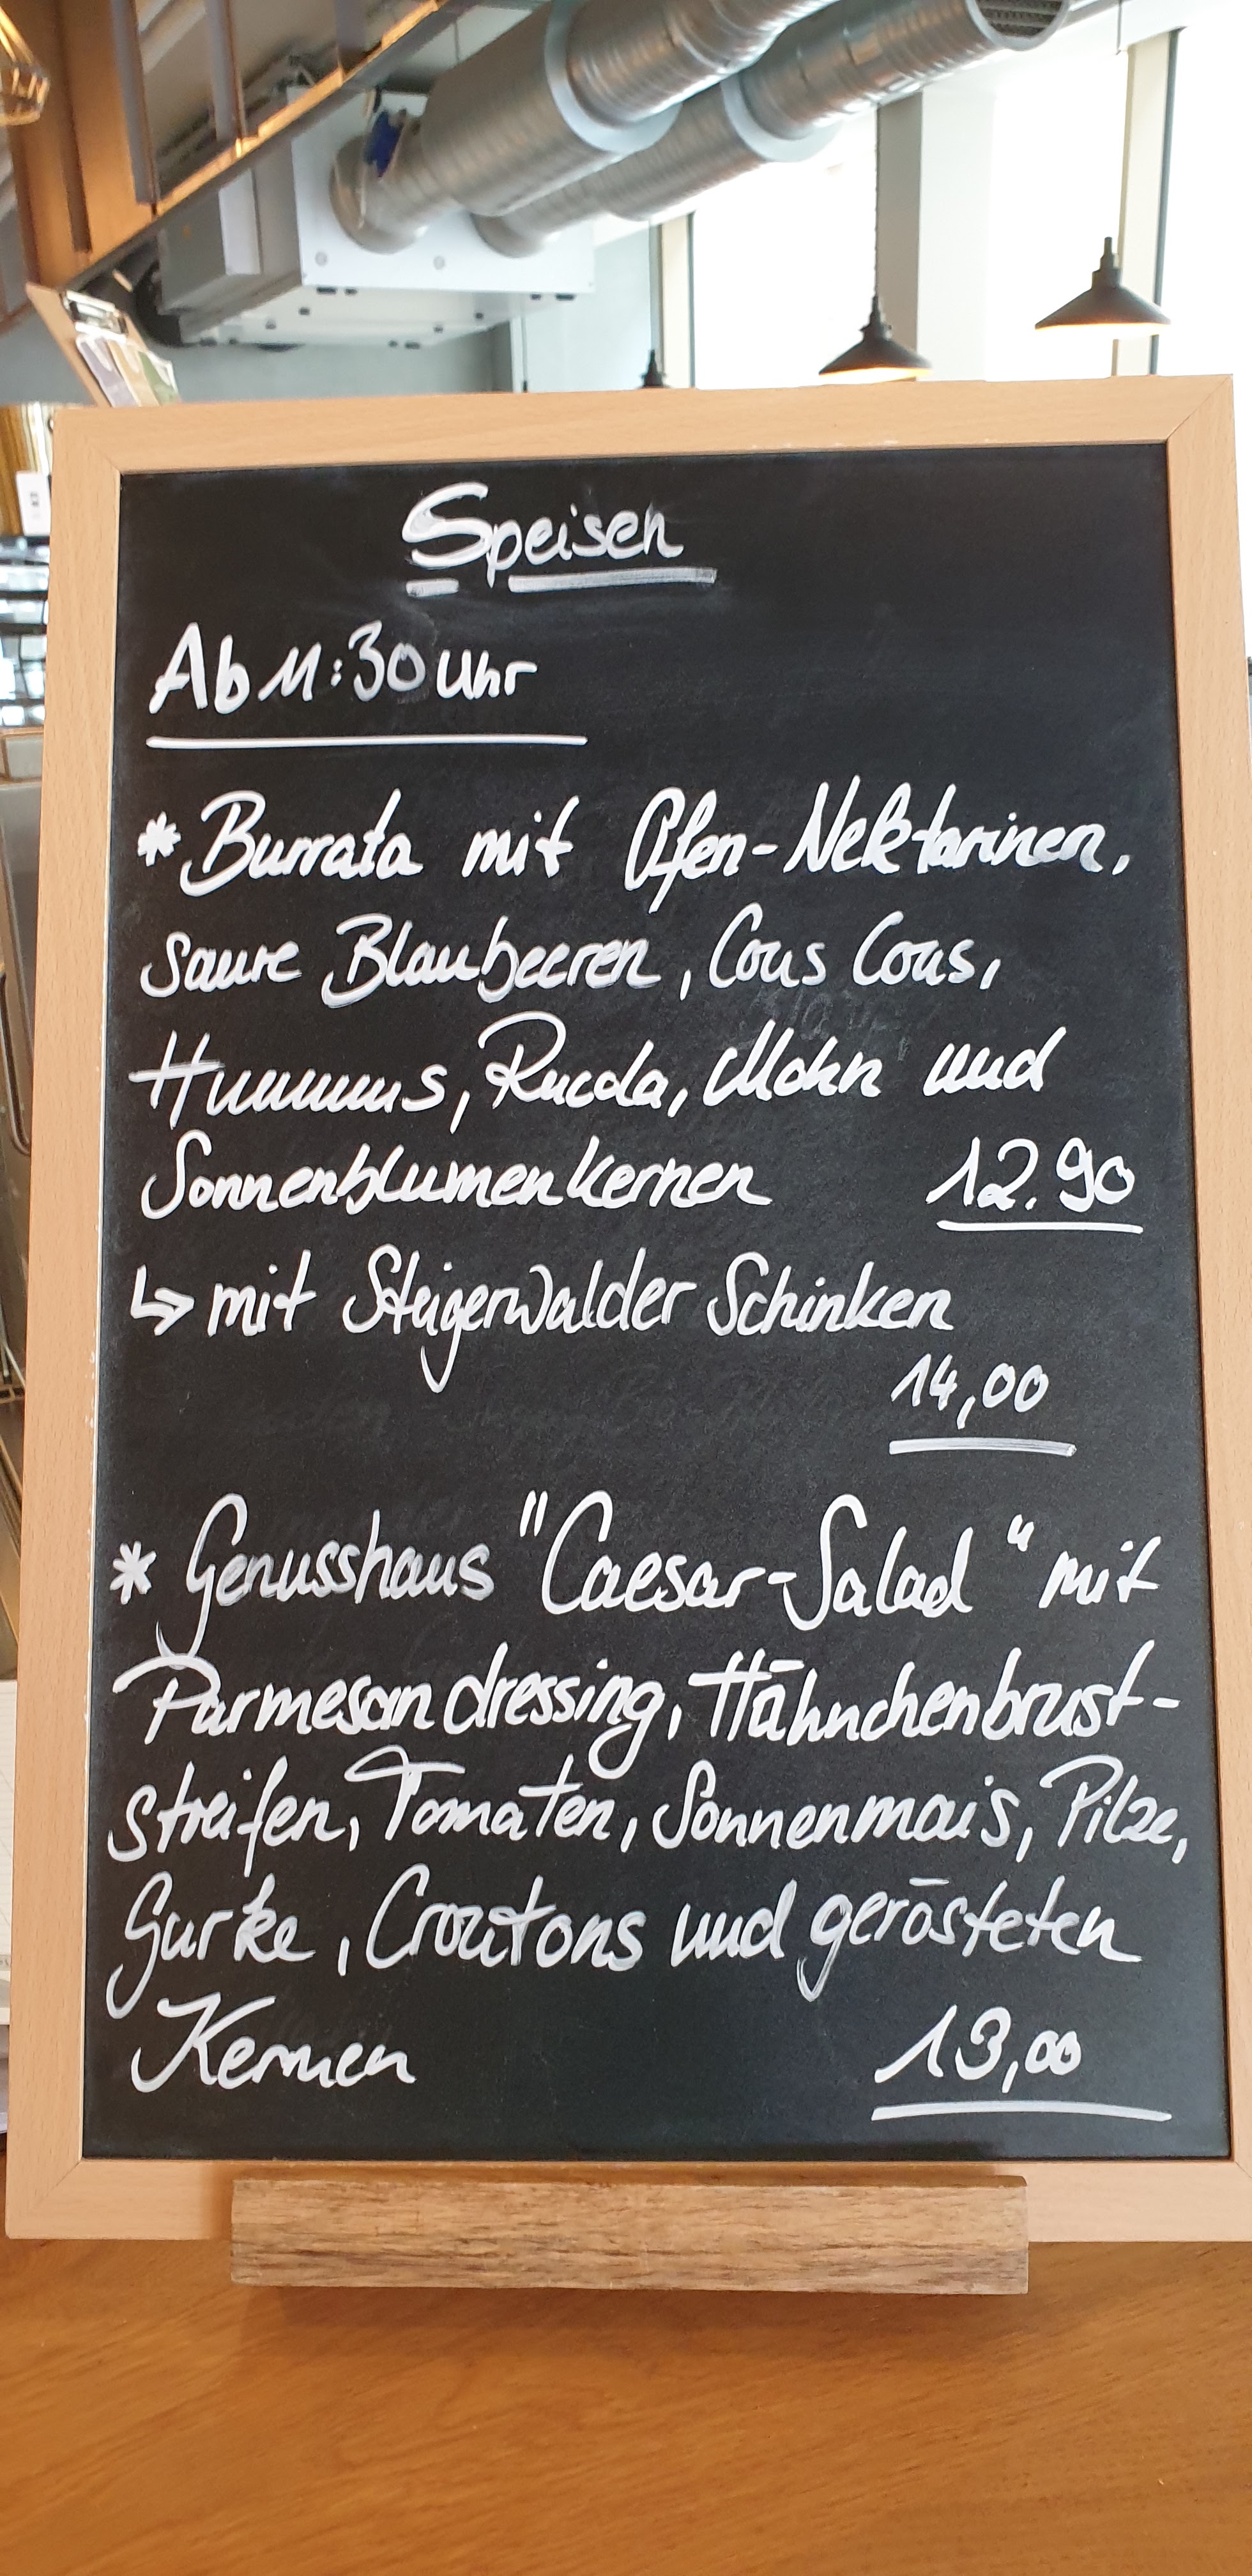 Speisen
Ab 11:30 Uhr
* Burrata mit Ofen-Nektarinen,
saure Blaubeeren, Cous Cous,
Hummus, Rucola, Mohn und
Sonnenblumenkernen 12.90
↳ mit Steigerwalder Schinken
14,00
* Genusshaus "Caesar-Salad" mit
Parmesandressing, Hähnchenbrust-
streifen, Tomaten, Sonnenmais, Pilze,
Gurke, Croutons und gerösteten
Kernen 13,00